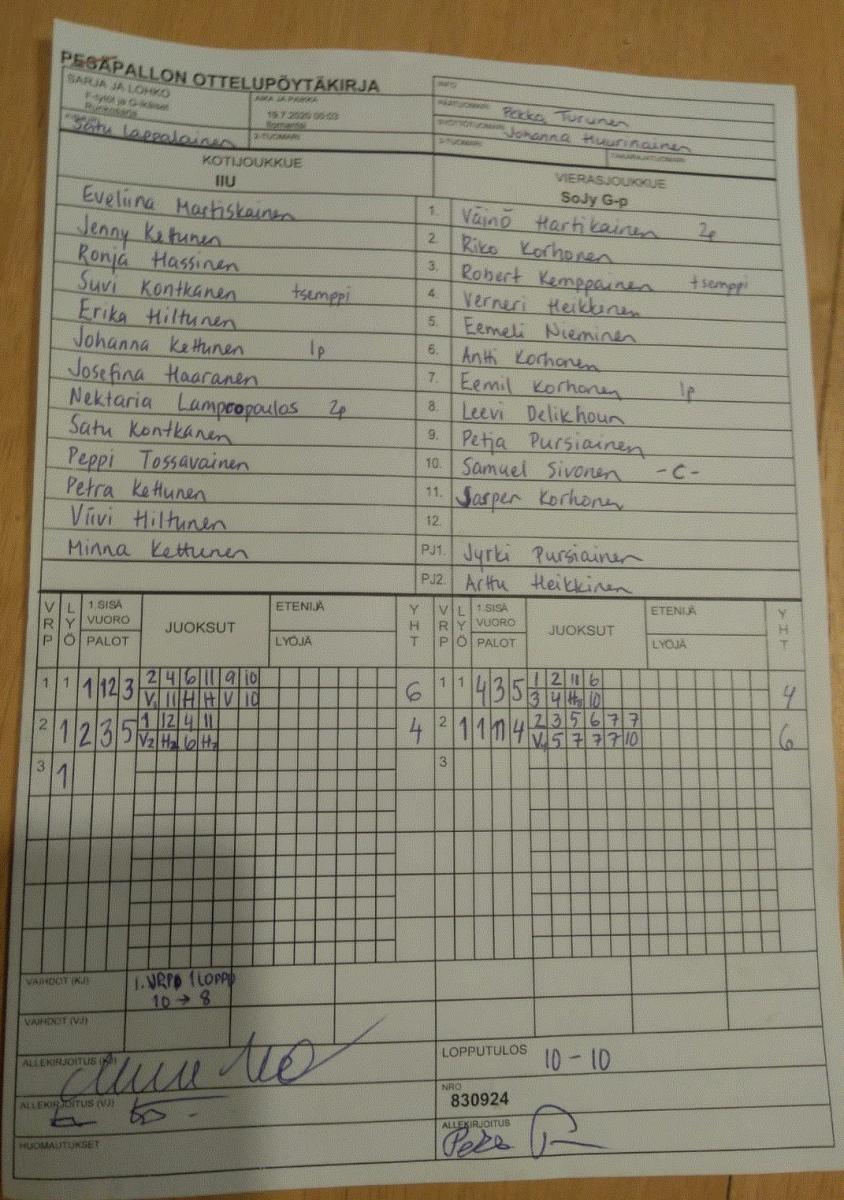 PESÄPALLON OTTELUPÖYTÄKIRJA
SARJA JA LOHKO
F-tytöt ja G-ikäiset
Runkosarja
AIKA JA PAIKKA
19.7.2020 00:03
Ilomantsi
INFO
PÄÄTUOMARI Pekka Turunen
SYÖTTÖTUOMARI Johanna Huurinainen
KIRJURI Satu Lappalainen
2-TUOMARI
3-TUOMARI
TAKARAJATUOMARI
KOTIJOUKKUE
IIU
VIERASJOUKKUE
SoJy G-p
Eveliina Martiskainen 1. Väinö Hartikainen 2p
Jenny Kettunen 2. Riko Korhonen
Ronja Hassinen 3. Robert Kemppainen tsemppi
Suvi Kontkanen tsemppi 4. Verneri Heikkinen
Erika Hiltunen 5. Eemeli Nieminen
Johanna Kettunen 1p 6. Antti Korhonen
Josefina Haaranen 7. Eemil Korhonen 1p
Nektaria Lampropoulos 2p 8. Leevi Delikhoun
Satu Kontkanen 9. Petja Pursiainen
Peppi Tossavainen 10. Samuel Sivonen -C-
Petra Kettunen 11. Jasper Korhonen
Viivi Hiltunen 12.
Minna Kettunen PJ1. Jyrki Pursiainen
PJ2. Arttu Heikkinen
VRP LYÖ 1.SISÄ VUORO PALOT JUOKSUT ETENIJÄ LYÖJÄ YHT VRP LYÖ 1.SISÄ VUORO PALOT JUOKSUT ETENIJÄ LYÖJÄ YHT
1 1 1 12 3 2 4 6 11 9 10 6 1 1 4 3 5 1 2 11 6 4
V1 11 H H V 10 3 4 H3 10
2 1 2 3 5 1 12 4 11 4 2 1 1 11 4 2 3 5 6 7 7 6
V2 H2 6 H2 V4 5 7 7 7 10
3 1 3
VAIHDOT (KJ) 1. VRPD 1 LOPPU
10 → 8
VAIHDOT (VJ)
ALLEKIRJOITUS (KJ)
LOPPUTULOS 10 - 10
ALLEKIRJOITUS (VJ)
NRO
830924
HUOMAUTUKSET
ALLEKIRJOITUS